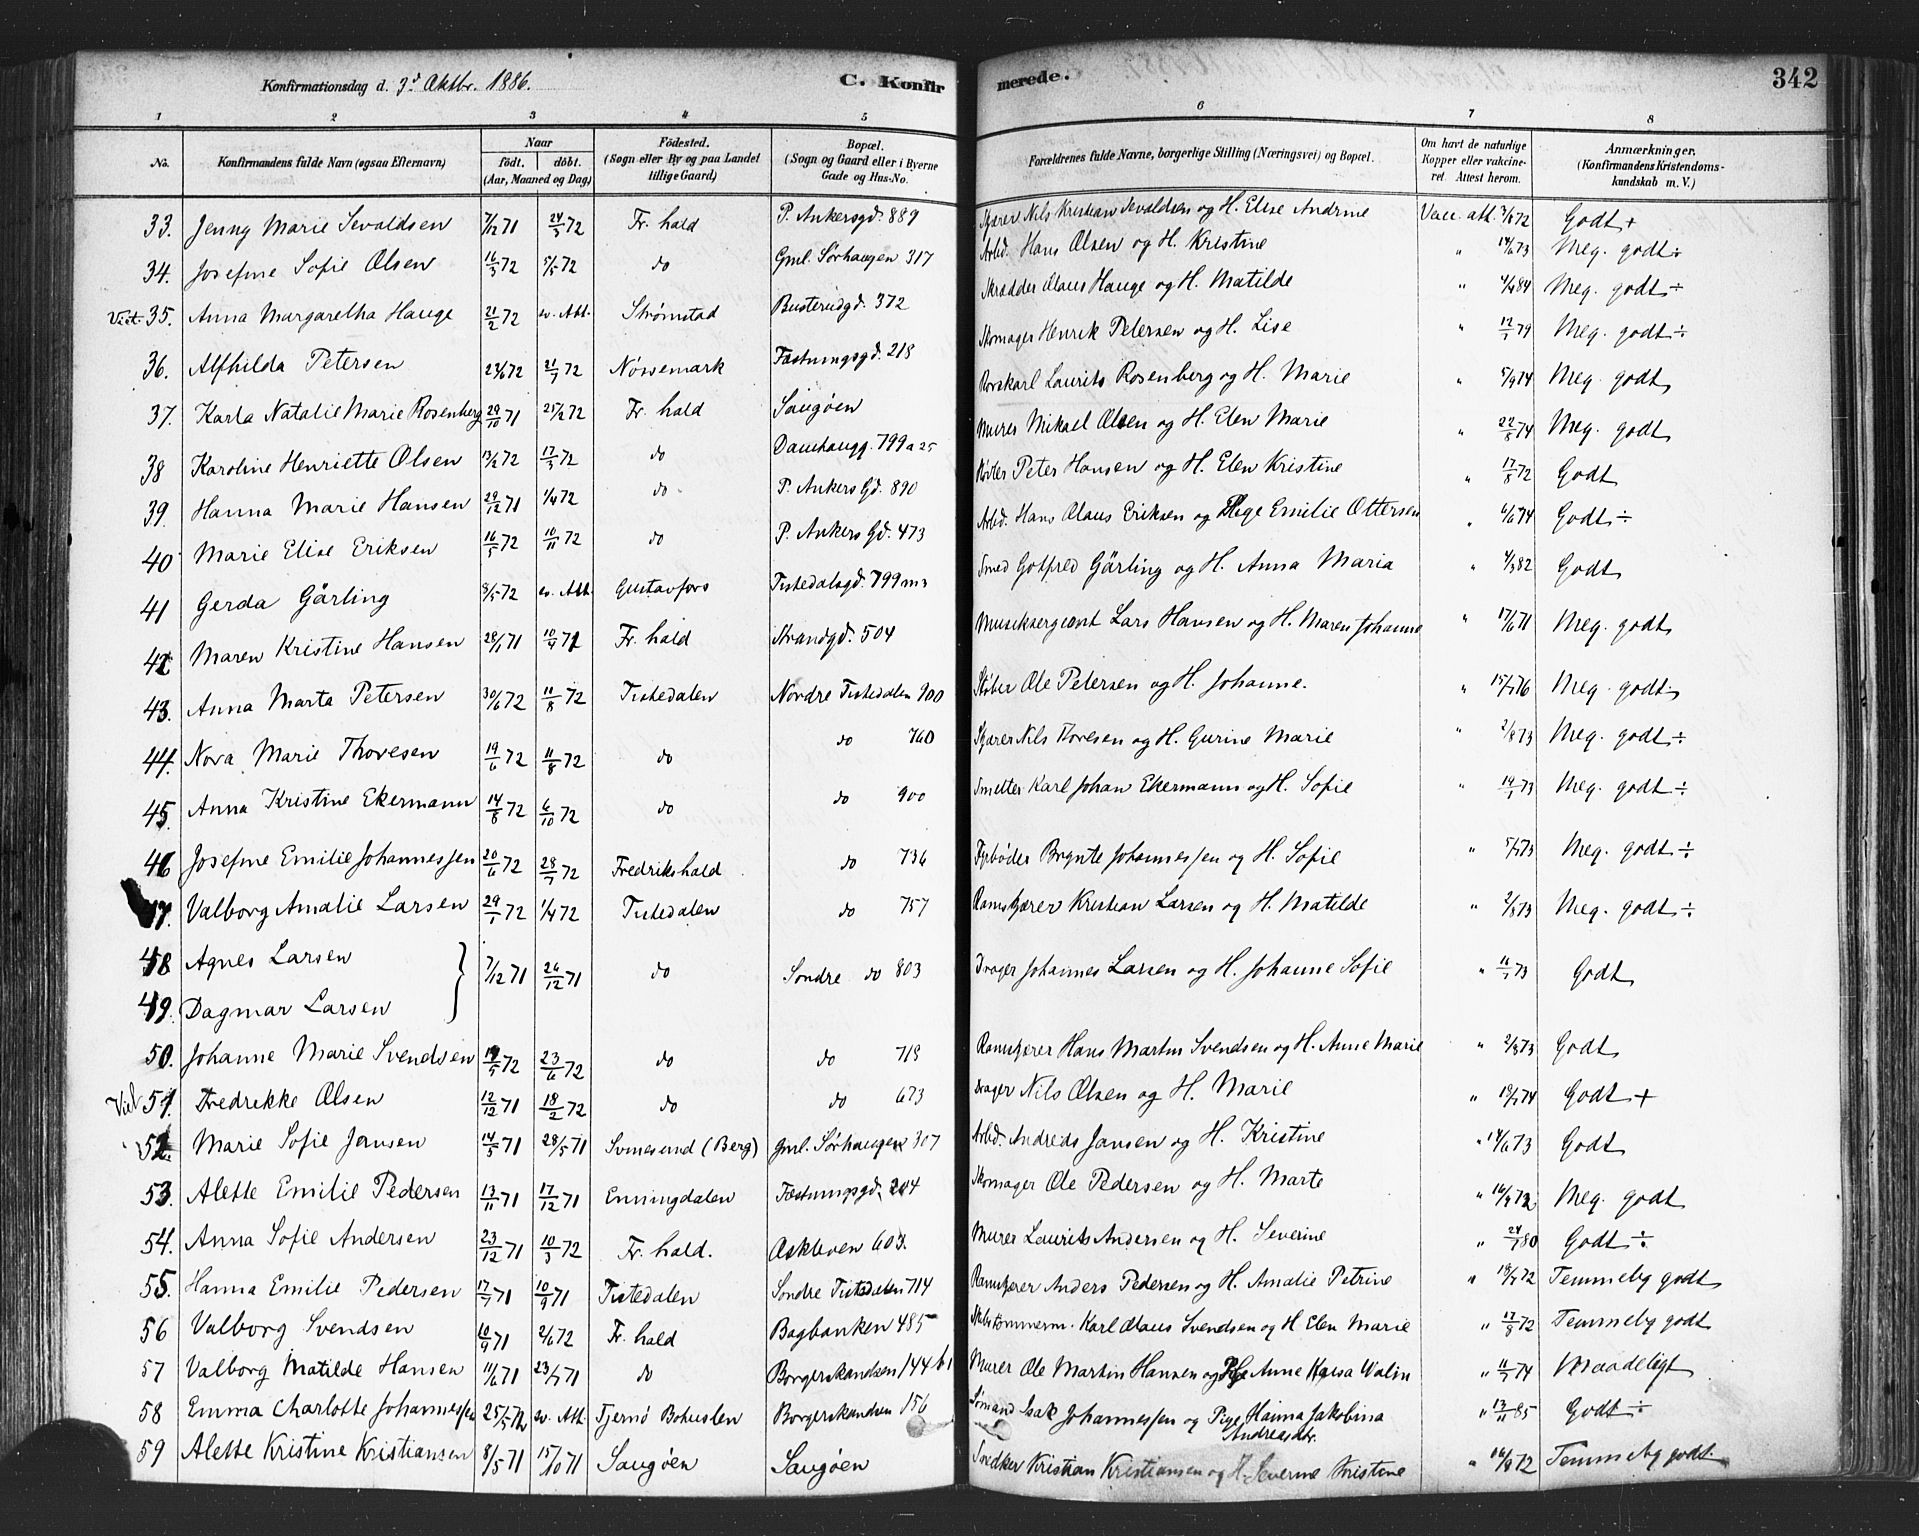 Konfirmationsdag d. 3d Oktbr. 1886. C. Konfirmerede. 342
1 2 3 4 5 6 7 8
No. Konfirmandens fulde Navn (ogsaa Efternavn) Naar født. døbt. (Aar, Maaned og Dag) Fødested. (Sogn eller By og paa Landet tillige Gaard) Bopæl. (Sogn og Gaard eller i Byerne Gade og Hus-No. Forældrenes fulde Navne, borgerlige Stilling (Næringsvei) og Bopæl. Om havt de naturlige Kopper eller vakcineret. Attest herom. Anmærkninger. (Konfirmandens Kristendomskundskab m. V.)
33. Jenny Marie Sevaldsen 7/12 71 24/3 72 Fr. hald P. Ankersgd. 889 Skjærer Nils Kristian Sevaldsen og H. Elise Andrine Vacc. att. 72 Godt +
34. Josefine Sofie Olsen 16/3 72 5/5 72 do Gml. Sørhaugen 317 Arbd. Hans Olsen og H. Kristine " 14/6 73 Meg. godt ÷
35. Anna Margaretha Hauge 21/2 72 ev. Att. Strømstad Busterudgd. 372 Skrædder Olaus Hauge og H. Matilde " 4/4 84 Meg. godt ÷
36. Alfhilda Petersen 23/6 72 21/7 72 Nössemark Fæstningsgd. 218 Skomager Henrik Petersen og H. Lise " 12/7 79 Meg. godt ÷
37. Karla Natalie Marie Rosenberg 29/10 71 25/2 72 Fr. hald Saugøen Rorskarl Laurits Rosenberg og H. Marie " 5/9 74 Meg. godt
38 Karoline Henriette Olsen 13/2 72 17/3 72 do Damhaugg. 799 a 25 Murer Mikael Olsen og H. Elen Marie " 22/8 74 Meg. godt
39. Hanna Marie Hansen 29/12 71 1/4 72 do P. Ankers Gd. 890 Peter Hansen og H. Elen Kristine " 17/8 72 Godt
40 Marie Elise Eriksen 16/5 72 10/11 72 do P. Ankers Gd. 473 Arbd. Hans Olaus Eriksen og Pige Emilie Ottersen " 6/6 74 Godt ÷
41 Gerda Gärling 8/5 72 ev. Att. Gustavfors Tistedalsgd. 799 m 3 Smed Gotfred Gärling og H. Anna Maria " 4/3 82 Godt
42 Maren Kristine Hansen 28/1 71 10/9 71 Fr. hald Strandgd. 504 Musiksergeant Lars Hansen og H. Maren Johanne " 17/6 71 Meg. godt
43. Anna Marta Petersen 30/6 72 11/8 72 Tistedalen Nordre Tistedalen 900 Støber Ole Petersen og H. Johanne. " 15/7 76 Meg. godt
44. Nora Marie Thovesen 19/6 72 11/8 72 do do 760 Skjærer Nils Tovesen og H. Gurine Marie " 2/8 73 Meg. godt ÷
45. Anna Kristine Ekermann 14/8 72 6/10 72 do do 900 Smelter Karl Johan Ekermann og H. Sofie " 19/7 73 Meg. godt ÷
46 Josefine Emilie Johannessen 20/6 72 28/7 72 Fredrikshald do 736 Fyrbøder Brynte Johannessen og H. Sofie " 5/7 73 Meg. godt ÷
47. Valborg Amalie Larsen 29/1 72 1/4 72 Tistedalen do 757 Ramskjærer Kristian Larsen og H. Matilde " 2/8 73 Meg. godt ÷
48 Agnes Larsen } 7/12 71 26/12 71 do Søndre do 803 Drager Johannes Larsen og H. Johanne Sofie " 11/7 73 Godt
49. Dagmar Larsen
50. Johanne Marie Svendsen 19/5 72 23/6 72 do do 719 Ramskjærer Hans Martin Svendsen og H. Anne Marie " 2/8 73 Godt
51. Fredrekke Olsen 12/12 71 18/2 72 do do 673 Drager Nils Olsen og H. Marie " 19/7 74 Godt +
52. Marie Sofie Jansen 14/5 71 28/5 71 Svinesund (Berg) Gml. Sørhaugen 307 Arbd. Andreas Jansen og H. Kristine " 14/6 73 Godt
53. Alette Emilie Pedersen 13/11 71 17/12 71 Enningdalen Fæstningsgd. 204 Skomager Ole Pedersen og H. Marte " 72 Meg. godt
54. Anna Sofie Andersen 23/12 71 10/3 72 Fr. hald. Askleven 603. Murer Laurits Andersen og H. Severine " 24/7 80 Godt ÷
55. Hanna Emilie Pedersen 17/7 71 10/9 71 Tistedalen Søndre Tistedalen 714 Ramskjærer Anders Pedersen og H. Amalie Petrine " 72 Temmelig godt
56 Valborg Svendsen 10/9 71 2/6 72 Fr. hald Bagbanken 485 Skibstømmerm. Karl Olaus Svendsen og H. Elen Marie " 17/8 72 Temmelig godt
57 Valborg Matilde Hansen 11/6 71 23/7 71 do Borgerskandsen 144 b 1 Murer Ole Martin Hansen og Pige Anne Kajsa Walin " 11/7 74 Maadeligt
58 Emma Charlotte Johannessen 25/5 72 ev. Att. Tjernö Bohuslen Borgerskandsen 156 Sømand Isak Johannessen og Pige Hanna Jakobina Andreasdtr. " 13/11 85 Godt ÷
59 Alette Kristine Kristiansen 8/5 71 15/10 71 Saugøen Saugøen Snedker Kristian Kristiansen og H. Severine Kristine " 72 Temmelig godt